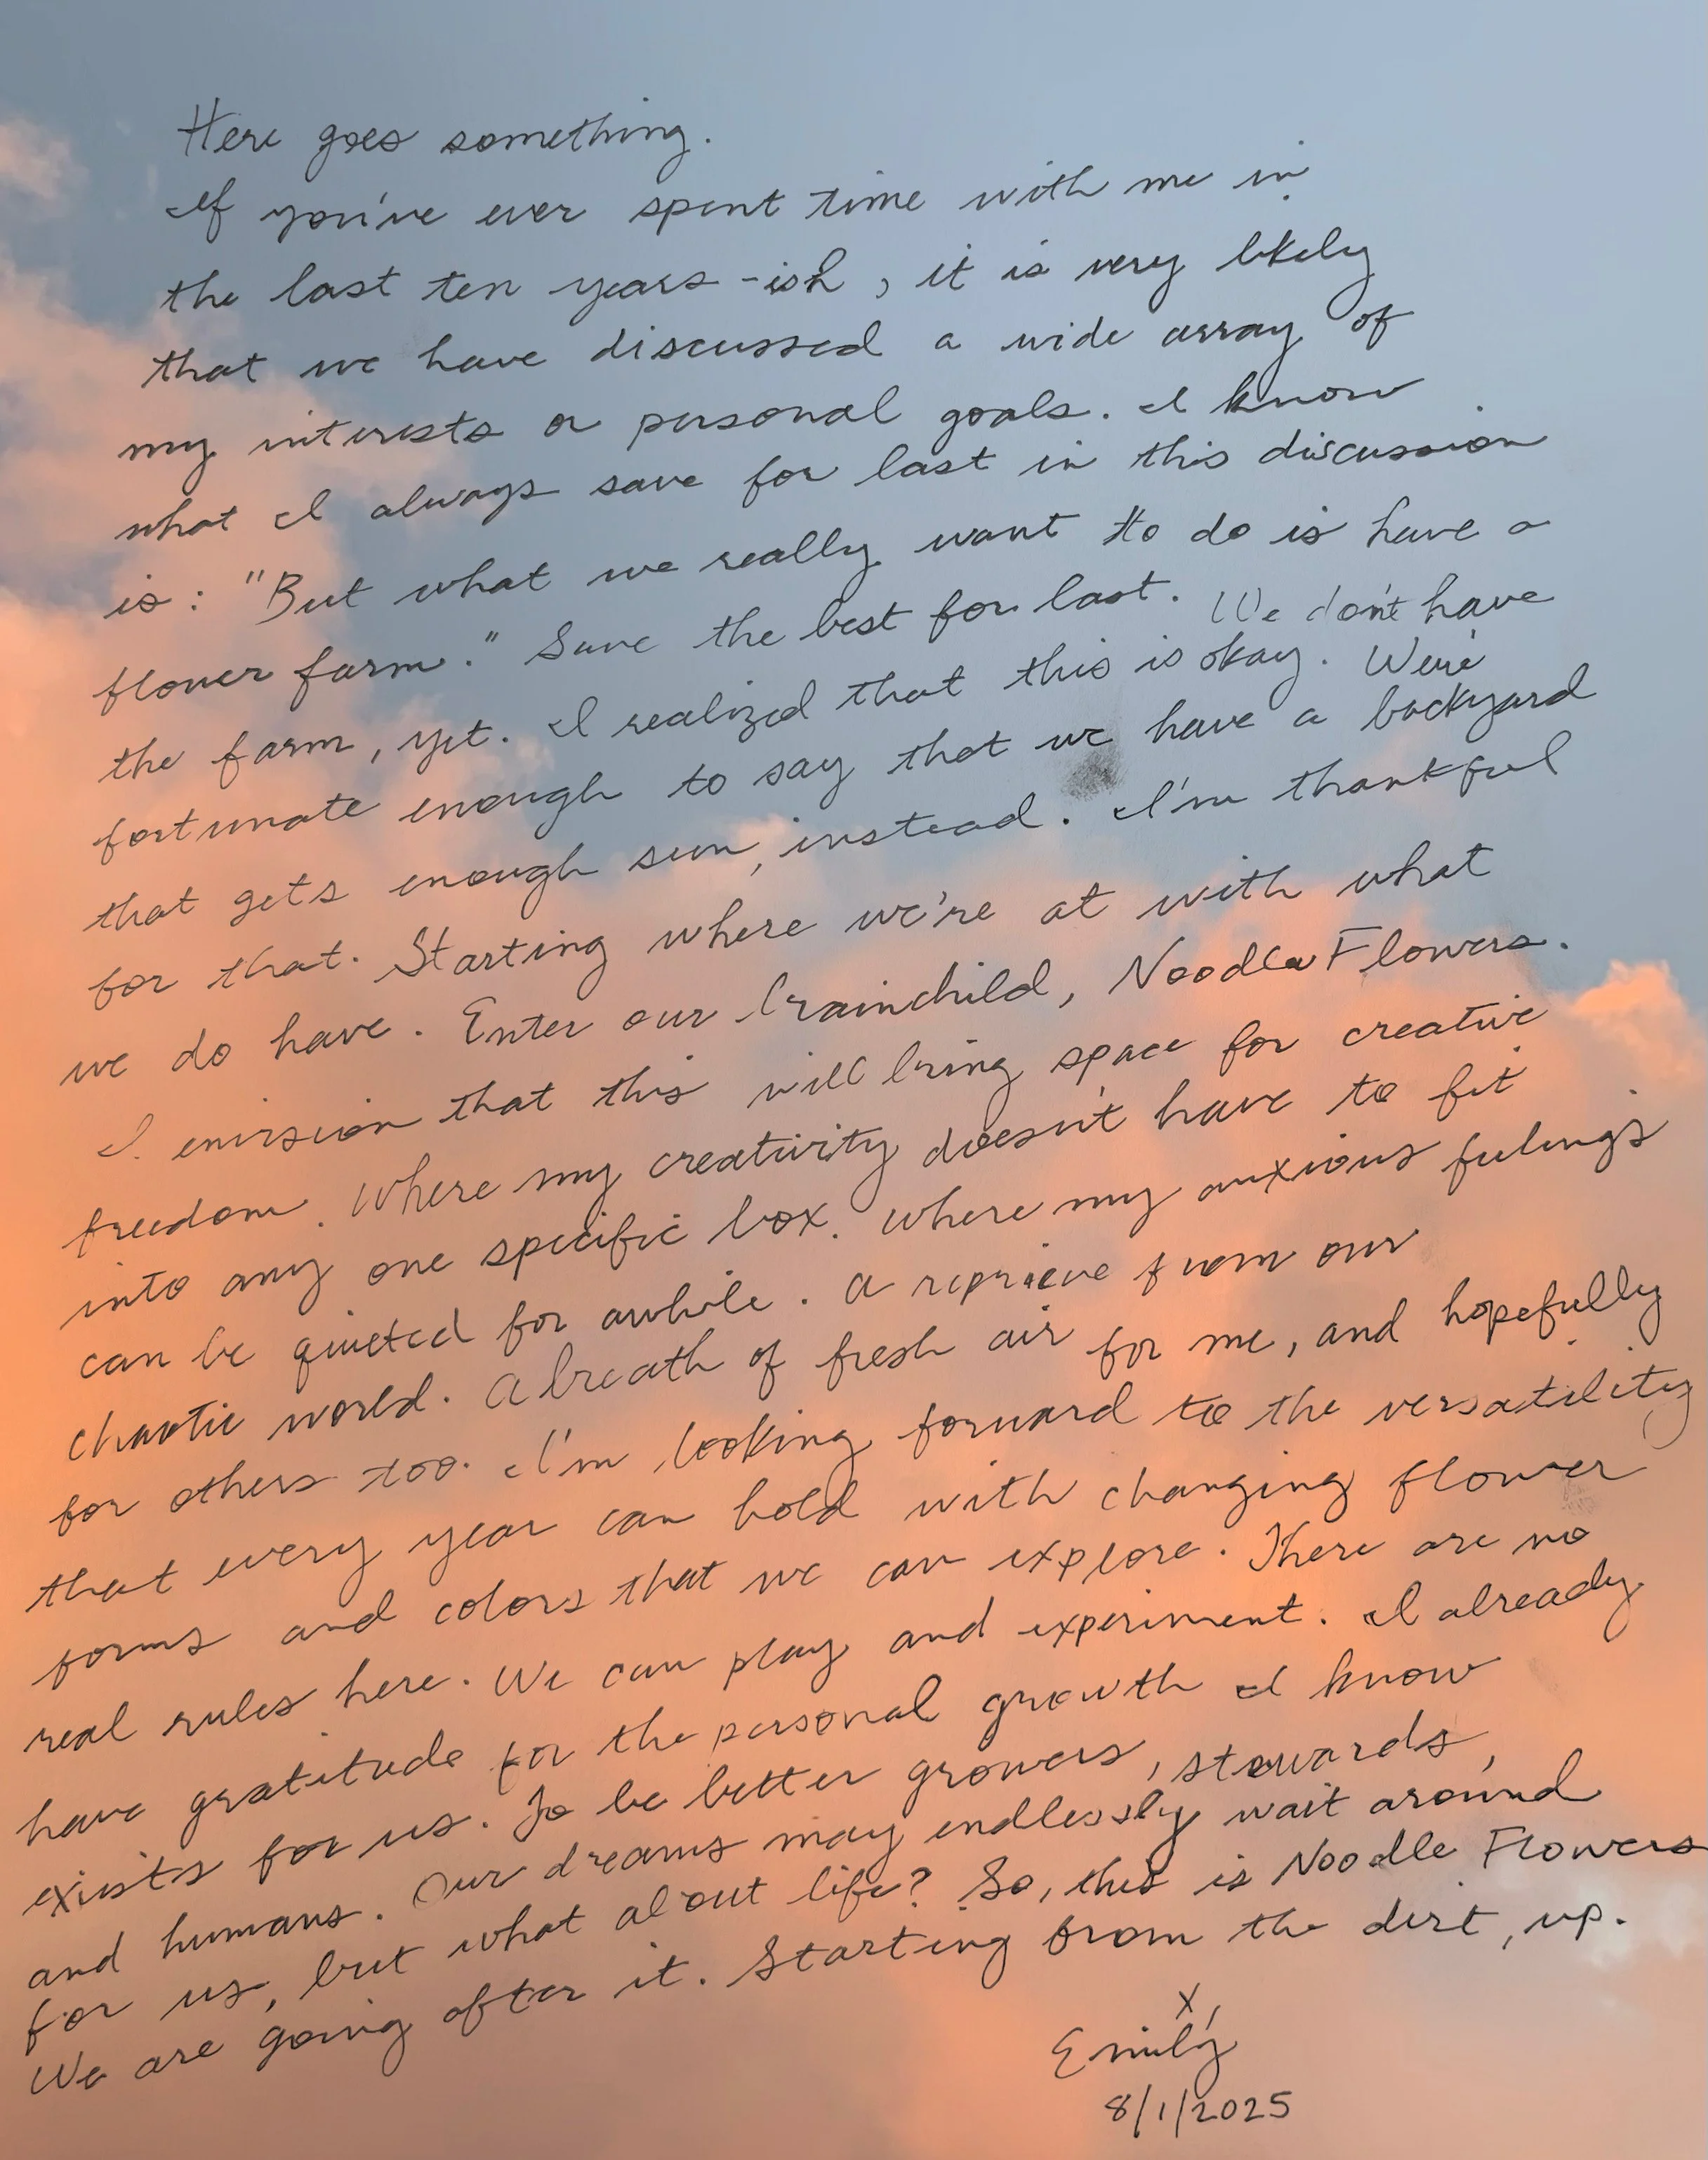 Here goes something.
If you've ever spent time with me in
the last ten years -ish, it is very likely
that we have discussed a wide array of
my interests or personal goals. I know
what I always save for last in this discussion
is: "But what we really want to do is have a
flower farm." Save the best for last. We don't have
the farm, yet. I realized that this is okay. We're
fortunate enough to say that we have a backyard
that gets enough sun, instead. I'm thankful
for that. Starting where we're at with what
we do have. Enter our brainchild, Noodle Flowers.
I envision that this will bring space for creative
freedom. Where my creativity doesn't have to fit
into any one specific box. Where my anxious feelings
can be quieted for awhile. A reprieve from our
chaotic world. A breath of fresh air for me, and hopefully
for others too. I'm looking forward to the versatility
that every year can hold with changing flower
forms and colors that we can explore. There are no
real rules here. We can play and experiment. I already
have gratitude for the personal growth I know
exists for us. To be better growers, stewards,
and humans. Our dreams may endlessly wait around
for us, but what about life? So, this is Noodle Flowers
We are going after it. Starting from the dirt, up.
x,
Emily
8/1/2025